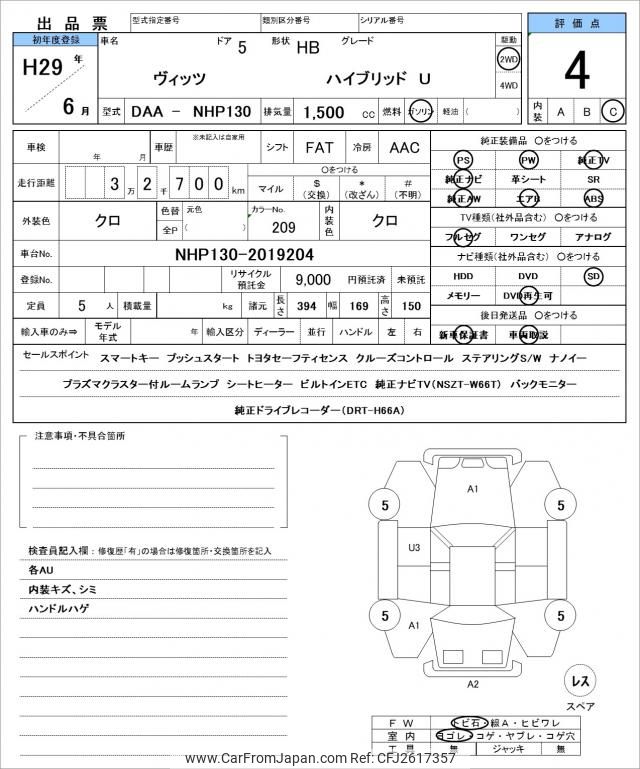 出品票 型式指定番号 類別区分番号 シリアル番号 評価点
初年度登録 車名 ドア 5 形状 HB グレード 駆動
H29 年 ヴィッツ ハイブリッド U 2WD 4
4WD
6 月 型式 DAA - NHP130 排気量 1,500 cc 燃料 ガソリン 軽油 ( ) 内装 A B C
車検 年 月 車歴 ※未記入は自家用 シフト FAT 冷房 AAC 純正装備品 〇をつける
PS PW 純正TV
走行距離 3 万 2 千 7 0 0 km 〇をつける
マイル $ (交換) * (改ざん) # (不明) 純正ナビ 革シート SR
純正AW エアB ABS
外装色 クロ 色替 元色 カラーNo. 209 内装色 クロ
全P ( )
TV種類(社外品含む) 〇をつける
フルセグ ワンセグ アナログ
車台No. NHP130-2019204 ナビ種類(社外品含む) 〇をつける
登録No. リサイクル預託金 9,000 円預託済 未預託 HDD DVD SD
定員 5 人 積載量 kg 諸元 長さ 394 幅 169 高さ 150 メモリー DVD再生可
後日発送品 〇をつける
輸入車のみ⇒ モデル年式 年 輸入区分 ディーラー 並行 ハンドル 左 右 新車保証書 車両取説
セールスポイント スマートキー プッシュスタート トヨタセーフティセンス クルーズコントロール ステアリングS/W ナノイー
プラズマクラスター付ルームランプ シートヒーター ビルトインETC 純正ナビTV(NSZT-W66T) バックモニター
純正ドライブレコーダー(DRT-H66A)
注意事項・不具合箇所
検査員記入欄：修復歴「有」の場合は修復箇所・交換箇所を記入
各AU
内装キズ、シミ
ハンドルハゲ
A1
5 5
U3
5 5
A1
A2
レス
スペア
FW トビ石・線A・ヒビワレ
室内 ヨゴレ・コゲ・ヤブレ・コゲ穴
工具 無 ジャッキ 無
www.CarFromJapan.com Ref: CFJ2617357